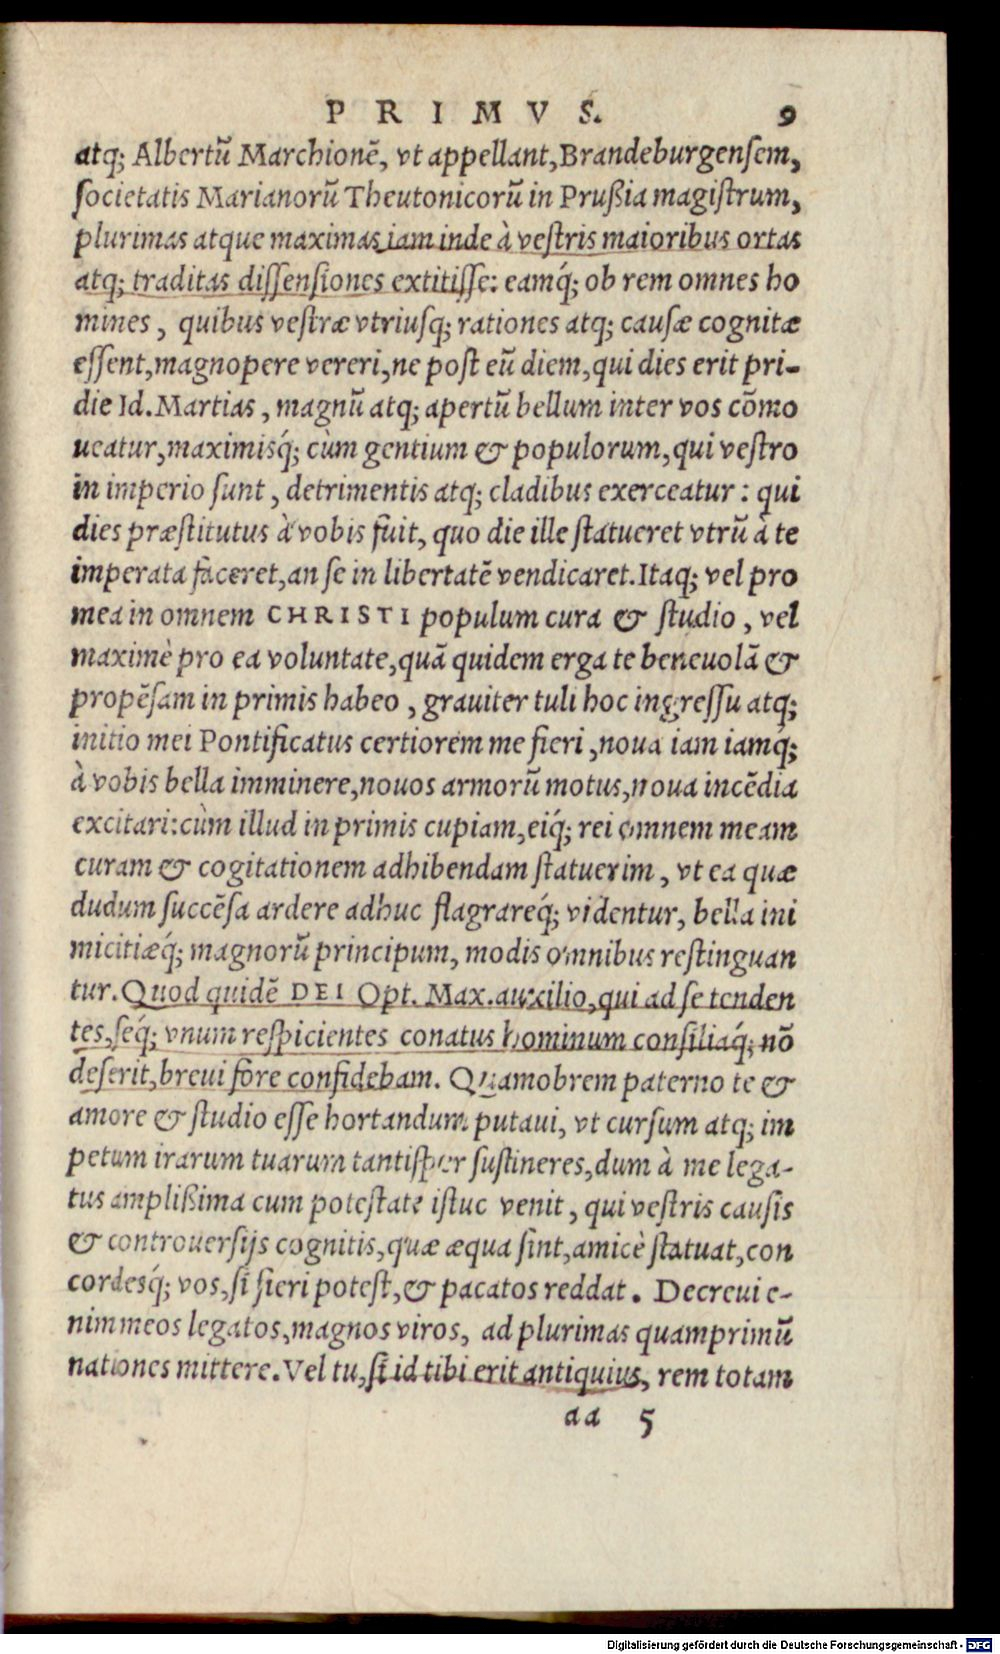 PRIMVS. 9
atq; Albertũ Marchionẽ, vt appellant, Brandeburgensem,
societatis Marianorũ Theutonicorũ in Prußia magistrum,
plurimas atque maximas iam inde à vestris maioribus ortas
atq; traditas dissensiones extitisse: eamq́; ob rem omnes ho
mines, quibus vestræ vtriusq; rationes atq; causæ cognitæ
essent, magnopere vereri, ne post eũ diem, qui dies erit pri-
die Id. Martias, magnũ atq; apertũ bellum inter vos cõmo
ueatur, maximisq́; cùm gentium & populorum, qui vestro
in imperio sunt, detrimentis atq; cladibus exerceatur: qui
dies præstitutus à vobis fuit, quo die ille statueret vtrũ à te
imperata faceret, an se in libertatẽ vendicaret. Itaq; vel pro
mea in omnem CHRISTI populum cura & studio, vel
maximè pro ea voluntate, quã quidem erga te beneuolã &
propẽsam in primis habeo, grauiter tuli hoc ingressu atq;
initio mei Pontificatus certiorem me fieri, noua iam iamq́;
à vobis bella imminere, nouos armorũ motus, noua incẽdia
excitari: cùm illud in primis cupiam, eiq́; rei omnem meam
curam & cogitationem adhibendam statuerim, vt ea quæ
dudum succẽsa ardere adhuc flagrareq́; videntur, bella ini
micitiæq́; magnorũ principum, modis omnibus restinguan
tur. Quod quidẽ DEI Opt. Max. auxilio, qui ad se tenden
tes, seq́; vnum respicientes conatus hominum consiliaq́; nõ
deserit, breui fore confidebam. Quamobrem paterno te &
amore & studio esse hortandum putaui, vt cursum atq; im
petum irarum tuarum tantisper sustineres, dum à me lega-
tus amplißima cum potestate istuc venit, qui vestris causis
& controuersijs cognitis, quæ æqua sint, amicè statuat, con
cordesq́; vos, si fieri potest, & pacatos reddat. Decreui e-
nim meos legatos, magnos viros, ad plurimas quamprimũ
nationes mittere. Vel tu, si id tibi erit antiquius, rem totam
aa 5
Digitalisierung gefördert durch die Deutsche Forschungsgemeinschaft - DFG